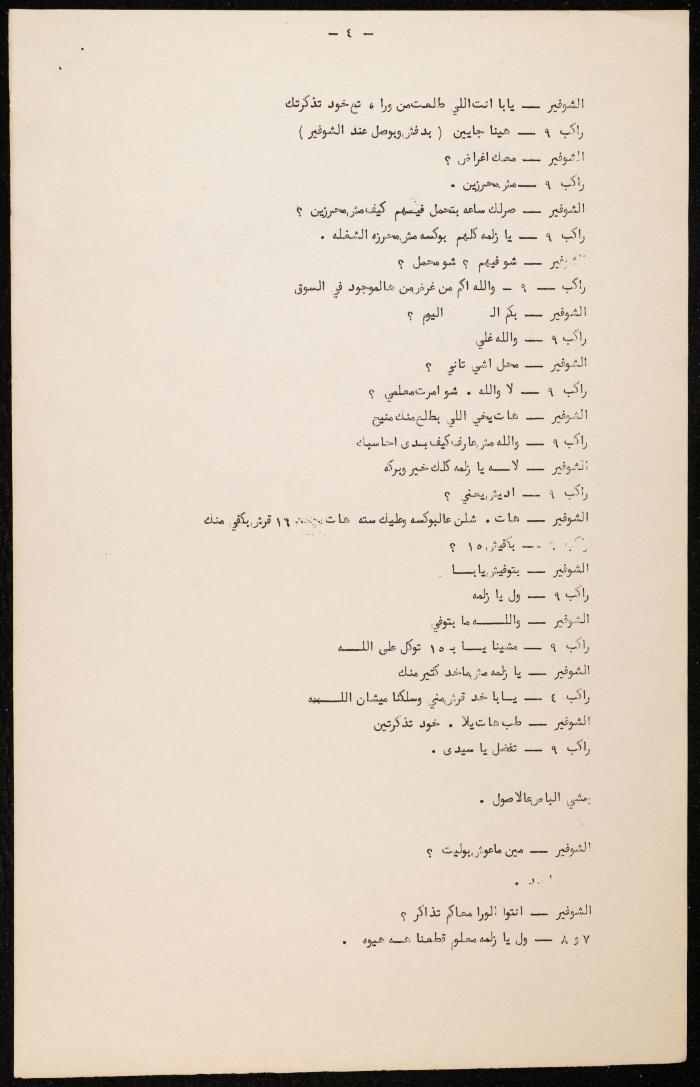 — ٤ —
الشوفير — يابا انت اللي طلعت من ورا ، تع خود تذكرتك
راكب ٩ — هينا جايين ( بدفش وبوصل عند الشوفير )
الشوفير — معك اغراض ؟
راكب ٩ — مش محرزين .
الشوفير — صرلك ساعه بتحمل فيسهم كيف مش محرزين ؟
راكب ٩ — يا زلمه كلهم بوكسه مش محرزه الشغله .
الشوفير — شو فيهم ؟ شو محمل ؟
راكب — ٩ — والله اكم من غرض من هالموجود في السوق
الشوفير — بكم الـ اليوم ؟
راكب ٩ — والله غلي
الشوفير — محل اشي تاني ؟
راكب ٩ — لا والله . شو امرت معلمي ؟
الشوفير — هات يخي اللي بطلع منك منيح
راكب ٩ — والله مش عارف كيف بدى احاسبك
الشوفير — لاــه يا زلمه كلك خير وبركه
راكب ٩ — اديش يعني ؟
الشوفير — هات . شلن عالبوكسه وعليك سته هات ١٦ قرش بكفي منك
— بكفيش ١٥ ؟
الشوفير — بتوفيش يابــا
راكب ٩ — ول يا زلمه
الشوفير — واللــــه ما بتوفي
راكب ٩ — مشينا يــا بـ ١٥ توكل على اللــــه
الشوفير — يا زلمه مش ماخد كتير منك
راكب ٤ — يــابا خد قرش مني وسلكنا ميشان اللــــه
الشوفير — طب هات يلا . خود تذكرتين
راكب ٩ — تفضل يا سيدى .
بمشي الباص عالاصول .
الشوفير — مين ماعوش بوليت ؟
.
الشوفير — انتوا الورا معاكم تذاكر ؟
٧ و ٨ — ول يا زلمه معلم قطعنا هــه هيوه .